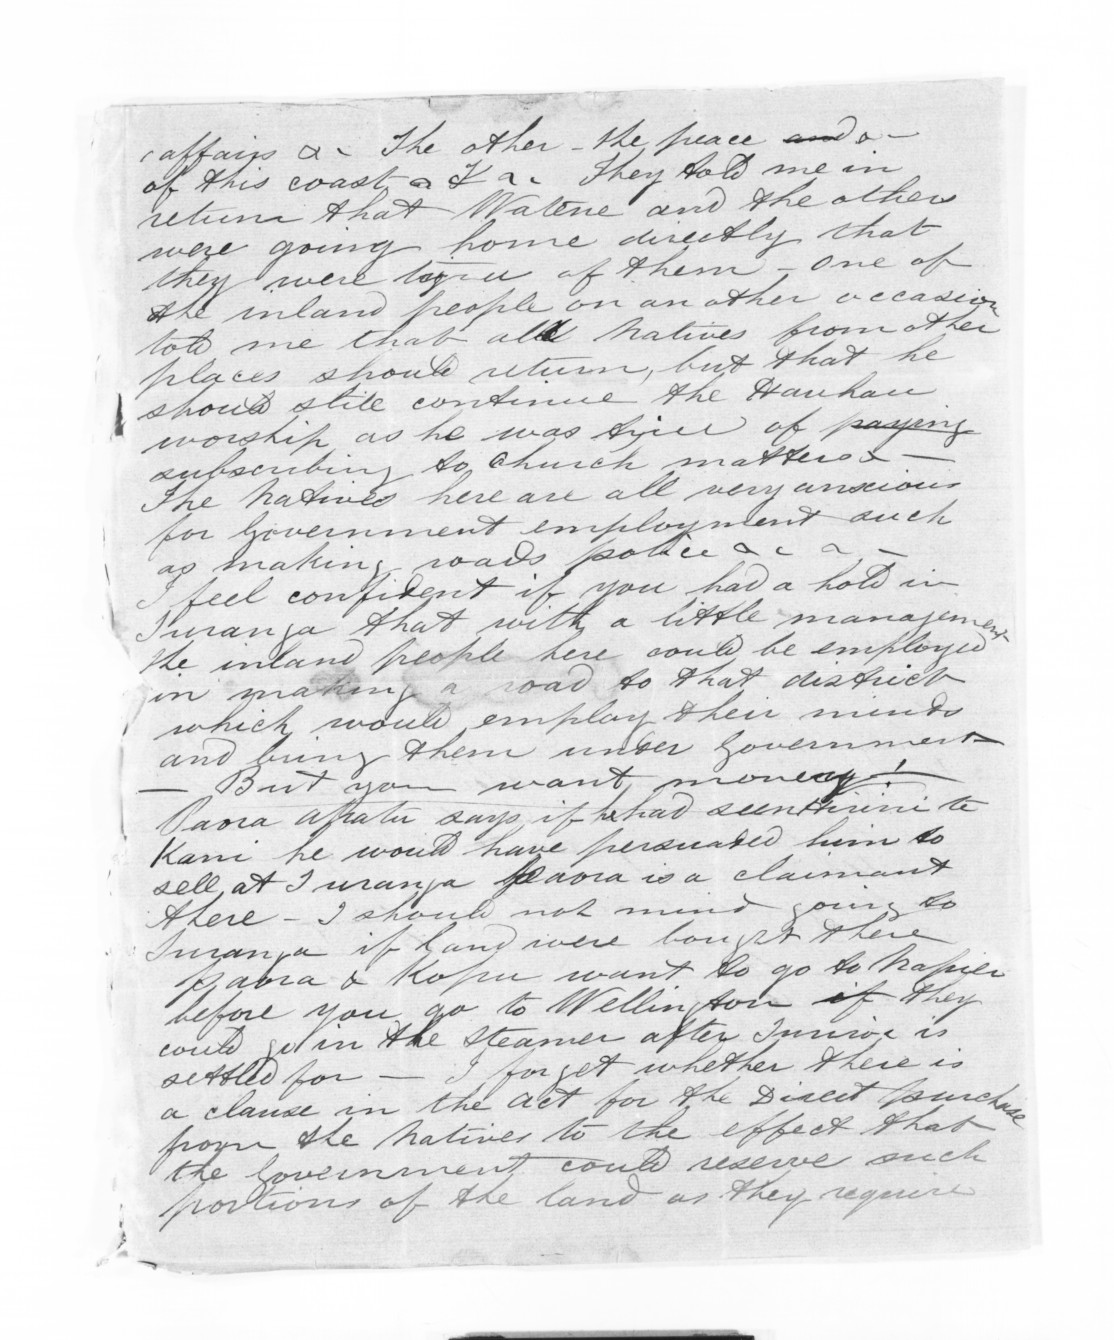 affairs &c The other - the peace and &c -
of this coast &c &c They told me in
return that Watene and the others
were going home directly that
they were tired of them - One of
the inland people on an other occasion
told me that all Natives from other
places should return, but that he
should still continue the Hauhau
worship as he was tired of paying
subscribing to church matters &c -
The Natives here are all very anxious
for Government employment such
as making roads police &c &c -
I feel confident if you had a hold in
Turanga that with a little management
the inland people here could be employed
in making a road to that district
which would employ their minds
and bring them under Government -
- But you want money! -
Paora Apatu says if he had seen Hirini te
Kani he would have persuaded him to
sell at Turanga Paora is a claimant
there - I should not mind going to
Turanga if land were bought there
Paora & Kopu want to go to Napier
before you go to Wellington if they
could go in the Steamer after Turiroa is
settled for - I forget whether there is
a clause in the Act for the Direct purchase
from the Natives to the effect that
the Government could reserve such
portions of the land as they require